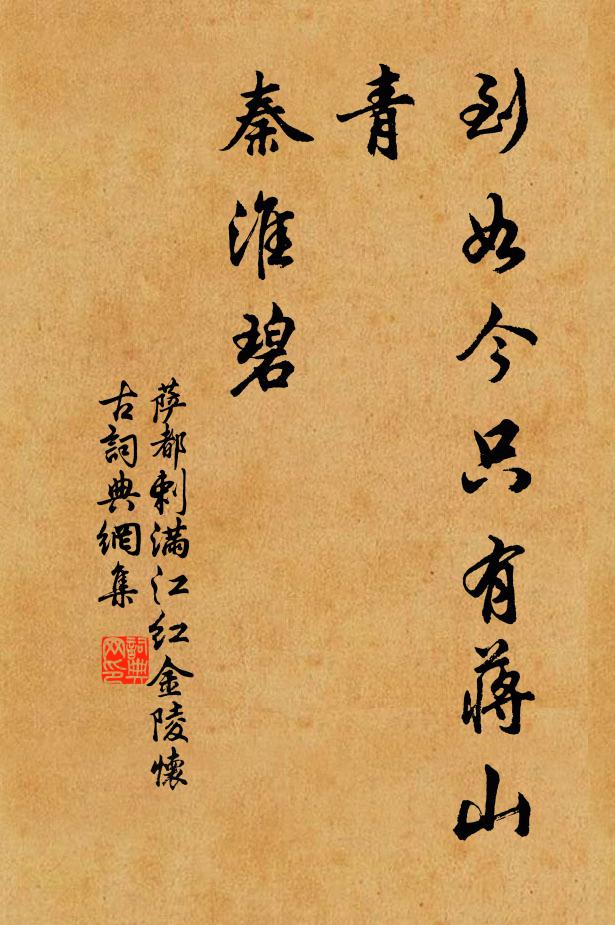 到如今只有蔣山
青
秦淮碧
薩都剌滿江红金陵懷
古詞典網集
詞典
网印